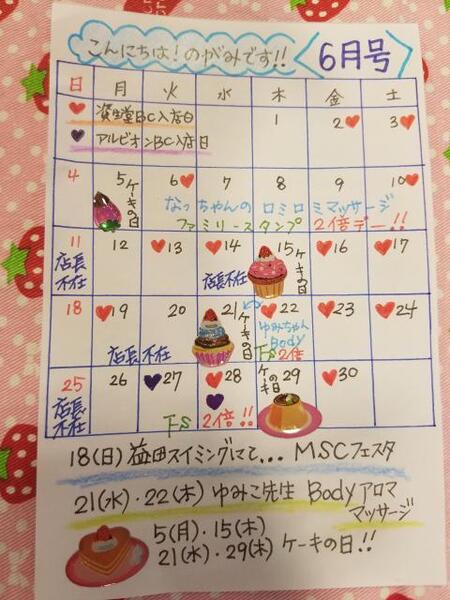 こんにちは!のがみです!!
6月号
日 月 火 水 木 金 土
♥ 資生堂BC入店日 1 2♥ 3♥
♥ アルビオンBC入店日
4 5 ケーキの日 6♥ 7 8 9 10♥
なっちゃんの ロミロミマッサージ
ファミリースタンプ 2倍デー!!
11 店長不在 12 ♥13 ♥14 店長不在 15 ケーキの日 ♥16 ♥17
18 ♥19 20 21 ケーキの日 ♥22 ♥23 ♥24
店長不在 ゆみちゃん
Body
FS 2倍
25 店長不在 26 ♥27 ♥28 ケーキの日 29 ♥30
FS 2倍!!
18(日)益田スイミングにて... MSCフェスタ
21(水)・22(木) ゆみこ先生 Bodyアロマ
マッサージ
5(月)・15(木)
21(水)・29(木) ケーキの日!!